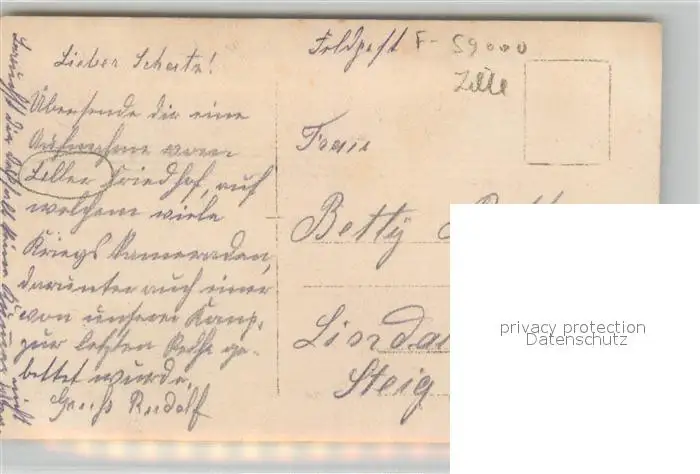 Feldpost F-59000
Lille
Lieber Schatz!
Übersende dir eine
Aufnahme vom
Liller Friedhof, auf
welchem viele
Kriegskameraden,
darunter auch einer
von unserer Komp.
zur letzten Ruhe ge-
bettet wurde.
Gruß Rudolf
Frau
Betty
Lindau
Steig
privacy protection
Datenschutz